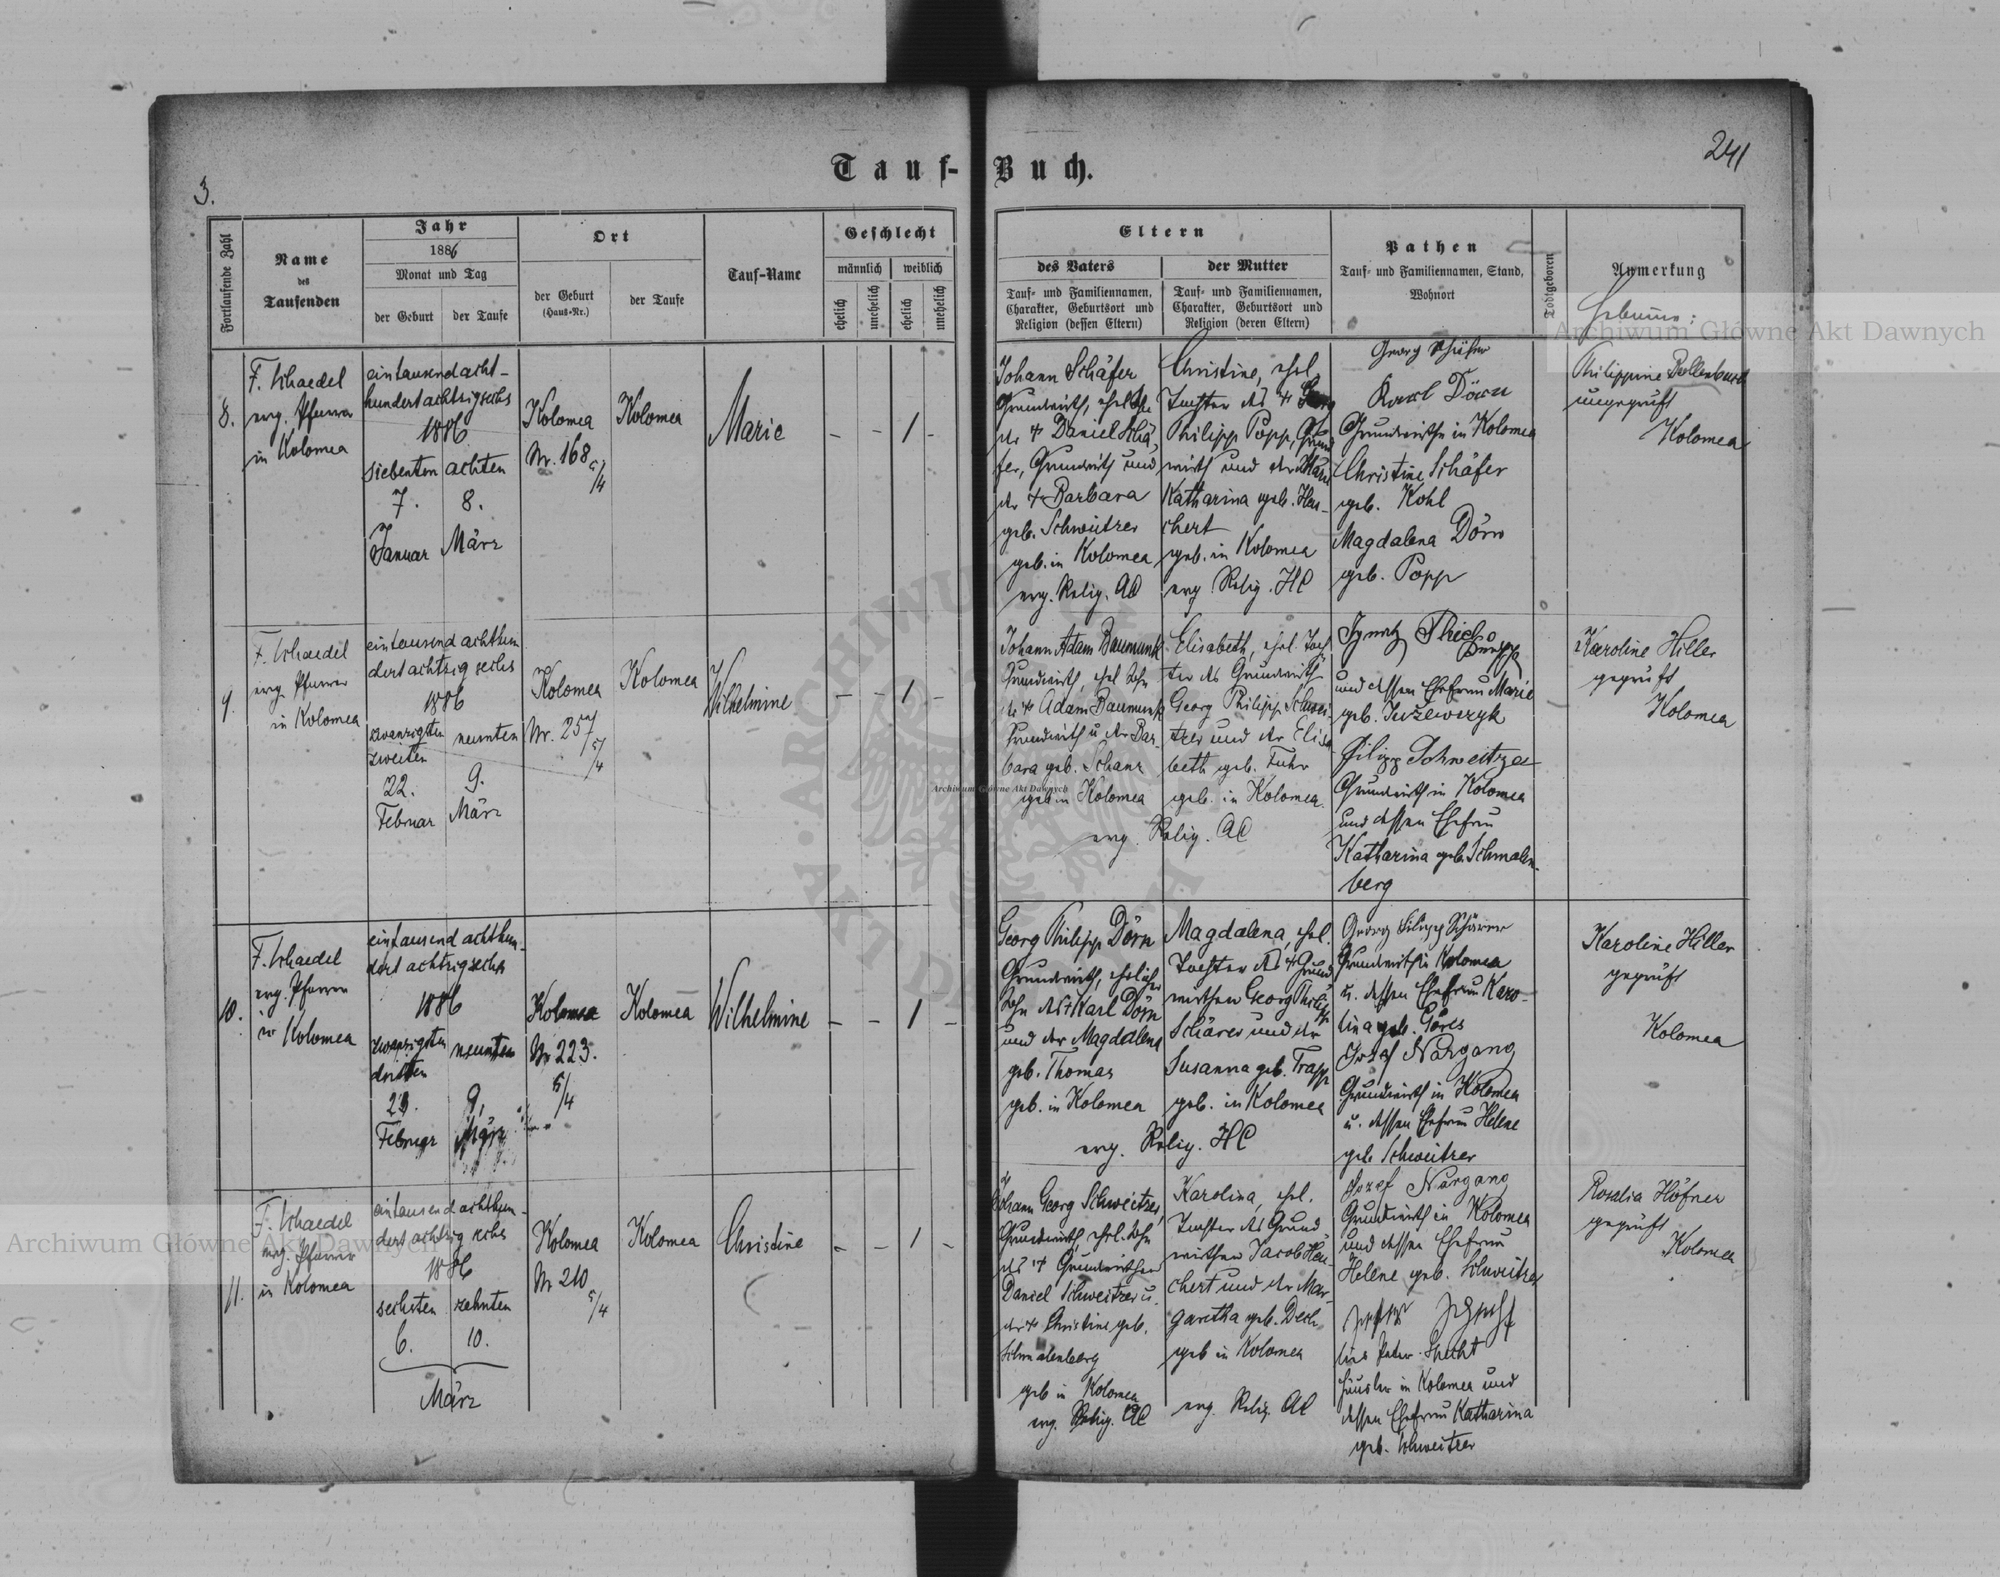 Tauf-Buch.
3.
241
Fortlaufende Zahl
Name
des
Taufenden
Jahr
1886
Monat und Tag
der Geburt
der Taufe
Ort
der Geburt
(Haus-Nr.)
der Taufe
Tauf-Name
Geschlecht
männlich
weiblich
ehelich
unehelich
ehelich
unehelich
Eltern
des Vaters
Tauf- und Familiennamen,
Charakter, Geburtsort und
Religion (dessen Eltern)
der Mutter
Tauf- und Familiennamen,
Charakter, Geburtsort und
Religion (deren Eltern)
Pathen
Tauf- und Familiennamen, Stand,
Wohnort
Todtgeboren
Anmerkung
8.
F. Schaedel
evg. Pfarrer
in Kolomea
eintausendacht-
hundertachtzigsechs
1886
siebenten achten
7. 8.
Januar März
Kolomea
Nr. 168
5/4
Kolomea
Marie
– – 1 –
Johann Schäfer
Grundwirth,
der + Daniel Schä-
fer, Grundwirth und
der + Barbara
geb. Schweitzer
geb. in Kolomea
evg. Relig. AC
Christine, ehel.
Tochter des +
Philipp Popp, Grund
wirth und der
Katharina geb. Heu-
chert
geb. in Kolomea
evg. Relig. HC
Georg Schäfer
Karl Dörn
Grundwirthe in Kolomea
Christine Schäfer
geb. Kohl
Magdalena Dörn
geb. Popp
Philippine
ungeprüft
Kolomea
9.
F. Schaedel
evg. Pfarrer
in Kolomea
eintausend achthun
dert achtzig sechs
1886
zwanzigsten neunten
zweiten
22. 9.
Februar März
Kolomea
Nr. 257
5/4
Kolomea
Wilhelmine
– – 1 –
Johann Adam Baumunk
Grundwirth, ehel. Sohn
des + Adam Baumunk
Grundwirth u der Bar-
bara geb. Schanz
geb. in Kolomea
Elisabeth, ehel. Toch
ter des Grundwirth
Georg Philipp Schwei-
tzer und der Elisa
beth geb. Fuhr
geb. in Kolomea.
evg. Relig. AC
Ignatz
und dessen Ehefrau Marie
geb.
Filipp Schweitzer
Grundwirth in Kolomea
und dessen Ehefrau
Katharina geb. Schmalen-
berg
Karoline Hiller
geprüft
Kolomea
10.
F. Schaedel
evg. Pfarrer
in Kolomea
eintausend achthun-
dert achtzig sechs
1886
zwanzigsten neunten
dritten
23. 9.
Februar März
Kolomea
Nr 223.
5/4
Kolomea
Wilhelmine
– – 1 –
Georg Philipp Dörn
Grundwirth, ehelicher
Sohn des + Karl Dörn
und der Magdalena
geb. Thomas
geb. in Kolomea
Magdalena, ehel.
Tochter des + Grund
wirthen Georg Philipp
Schärer und der
Susanna geb. Trapp
geb. in Kolomea
evg. Relig. HC
Georg Filipp Schärer
Grundwirth in Kolomea
u. dessen Ehefrau Karo-
lina geb. Göres
Josef Nargang
Grundwirth in Kolomea
u. dessen Ehefrau Helene
geb. Schweitzer
Karoline Hiller
geprüft
Kolomea
11.
F. Schaedel
evg. Pfarrer
in Kolomea
eintausend achthun-
dert achtzig sechs
1886
sechsten zehnten
6. 10.
März
Kolomea
Nr 210
5/4
Kolomea
Christine
– – 1 –
Johann Georg Schweitzer,
Grundwirth, ehel. Sohn
des + Grundwirthen
Daniel Schweitzer u.
der + Christine geb.
Schmalenberg
geb in Kolomea
evg. Relig. AC
Karolina, ehel.
Tochter des Grund
wirthen Jacob Heu-
chert und der Mar-
garetha geb. Dech
geb in Kolomea
evg. Relig. AC
Jozef Nargang
Grundwirth in Kolomea
und dessen Ehefrau
Helene geb. Schweitzer
Peter Specht
Häusler in Kolomea und
dessen Ehefrau Katharina
geb. Schweitzer
Rosalia Höfner
geprüft
Kolomea
Archiwum Główne Akt Dawnych
Archiwum Główne Akt Dawnych
Archiwum Główne Akt Dawnych